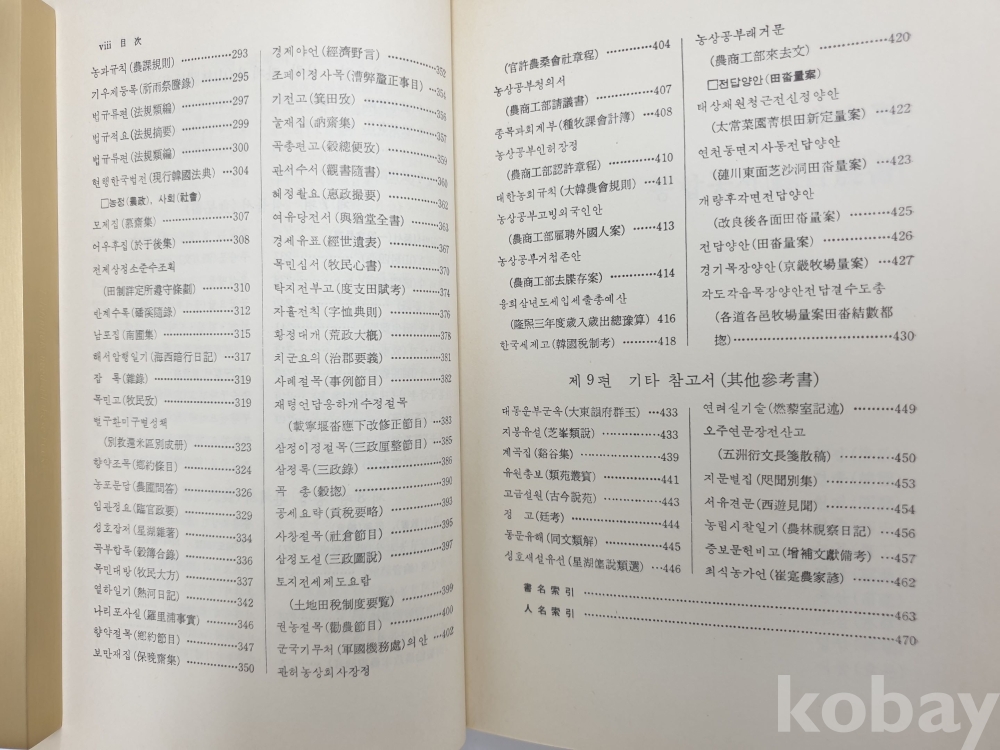 viii 目 次
농과규칙(農課規則)⋯293
기우제등록(祈雨祭謄錄)⋯295
법규류편(法規類編)⋯297
법규적요(法規摘要)⋯299
법규류편(法規類編)⋯300
현행한국법전(現行韓國法典)⋯304
□농정(農政), 사회(社會)
모제집(慕齋集)⋯307
어우후집(於于後集)⋯308
전제상정소준수조획
(田制詳定所遵守條劃)⋯310
반계수록(磻溪隨錄)⋯312
남포집(南圃集)⋯315
해서암행일기(海西暗行日記)⋯317
잡 록(雜錄)⋯319
목민고(牧民攷)⋯319
별구환미구별성책
(別救還米區別成册)⋯323
향약조목(鄕約條目)⋯324
농포문답(農圃問答)⋯326
임관정요(臨官政要)⋯329
성호잡저(星湖雜著)⋯334
곡부합록(穀簿合錄)⋯336
목민대방(牧民大方)⋯337
열하일기(熱河日記)⋯342
나리포사실(羅里浦事實)⋯346
향약절목(鄕約節目)⋯347
보만재집(保晩齋集)⋯350
경제야언(經濟野言)⋯352
조폐이정사목(漕弊釐正事目)⋯354
기전고(箕田攷)⋯356
눌재집(訥齋集)⋯357
곡총편고(穀總便攷)⋯359
관서수서(觀書隨書)⋯360
혜정촬요(惠政撮要)⋯362
여유당전서(與猶堂全書)⋯363
경세유표(經世遺表)⋯367
목민심서(牧民心書)⋯370
탁지전부고(度支田賦考)⋯374
자휼전칙(字恤典則)⋯376
황정대개(荒政大槪)⋯378
치군요의(治郡要義)⋯381
사례절목(事例節目)⋯382
재령언답응하개수정절목
(載寧堰畓應下改修正節目)⋯383
삼정이정절목(三政厘整節目)⋯385
삼정록(三政錄)⋯386
곡 총(穀摠)⋯390
공세요략(貢稅要略)⋯393
사창절목(社倉節目)⋯395
삼정도설(三政圖說)⋯397
토지전세제도요람
(土地田稅制度要覽)⋯399
권농절목(勸農節目)⋯400
군국기무처(軍國機務處)의안⋯402
관허농상회사장정
(官許農桑會社章程)⋯404
농상공부청의서
(農商工部請議書)⋯407
종목과회계부(種牧課會計簿)⋯408
농상공부인허장정
(農商工部認許章程)⋯410
대한농회규칙(大韓農會規則)⋯411
농상공부고빙외국인안
(農商工部雇聘外國人案)⋯413
농상공부거첩존안
(農商工部去牒存案)⋯414
융희삼년도세입세출총예산
(隆煕三年度歲入歲出總豫算) 416
한국세제고(韓國稅制考)⋯418
농상공부래거문
(農商工部來去文)⋯420
□전답양안(田畓量案)
태상채원청근전신정양안
(太常菜園菁根田新定量案)⋯422
연천동면지사동전답양안
(漣川東面芝沙洞田畓量案)⋯423
개량후각면전답양안
(改良後各面田畓量案)⋯425
전답양안(田畓量案)⋯426
경기목장양안(京畿牧場量案)⋯427
각도각읍목장양안전답결수도총
(各道各邑牧場量案田畓結數都
摠)⋯430
제9편 기타 참고서(其他參考書)
대동운부군옥(大東韻府群玉)⋯433
지봉유설(芝峯類說)⋯433
계곡집(谿谷集)⋯439
유원총보(類苑叢寶)⋯441
고금설원(古今說苑)⋯443
정 고(廷考)⋯444
동문유해(同文類解)⋯445
성호새설유선(星湖僿說類選)⋯446
연려실기술(燃藜室記述)⋯449
오주연문장전산고
(五洲衍文長箋散稿)⋯450
지문별집(咫聞別集)⋯453
서유견문(西遊見聞)⋯454
농림시찰일기(農林視察日記)⋯456
증보문헌비고(增補文獻備考)⋯457
최식농가언(崔寔農家諺)⋯462
書名索引⋯463
人名索引⋯470
kobay